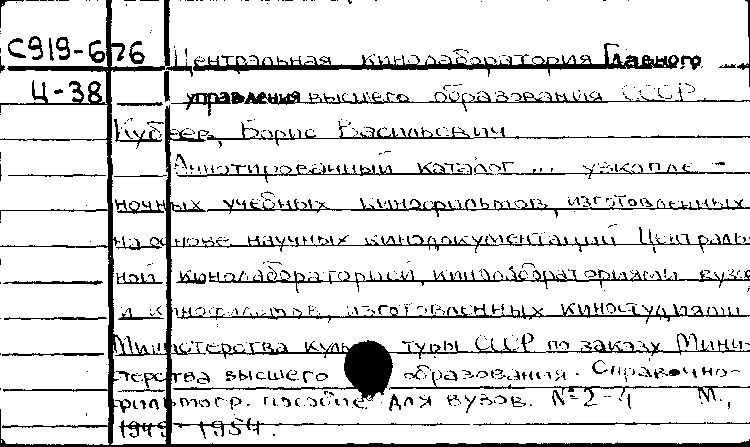 С919-676 Центральная кинолаборатория Главного
Ц-38 управления высшего образования СССР.
Кубеев, Борис Васильевич.
Аннотированный каталог ... узкопле-
ночных учебных кинофильмов, изготовленных
на основе научных кинодокументаций Централь-
ной кинолабораторией, кинолабораториями вузов
и кинофильмов, изготовленных киностудиями
Министерства культуры СССР по заказу Мини-
стерства высшего образования. Справочно-
фильмогр. пособие для вузов. №2-4 М.,
1949-1954.